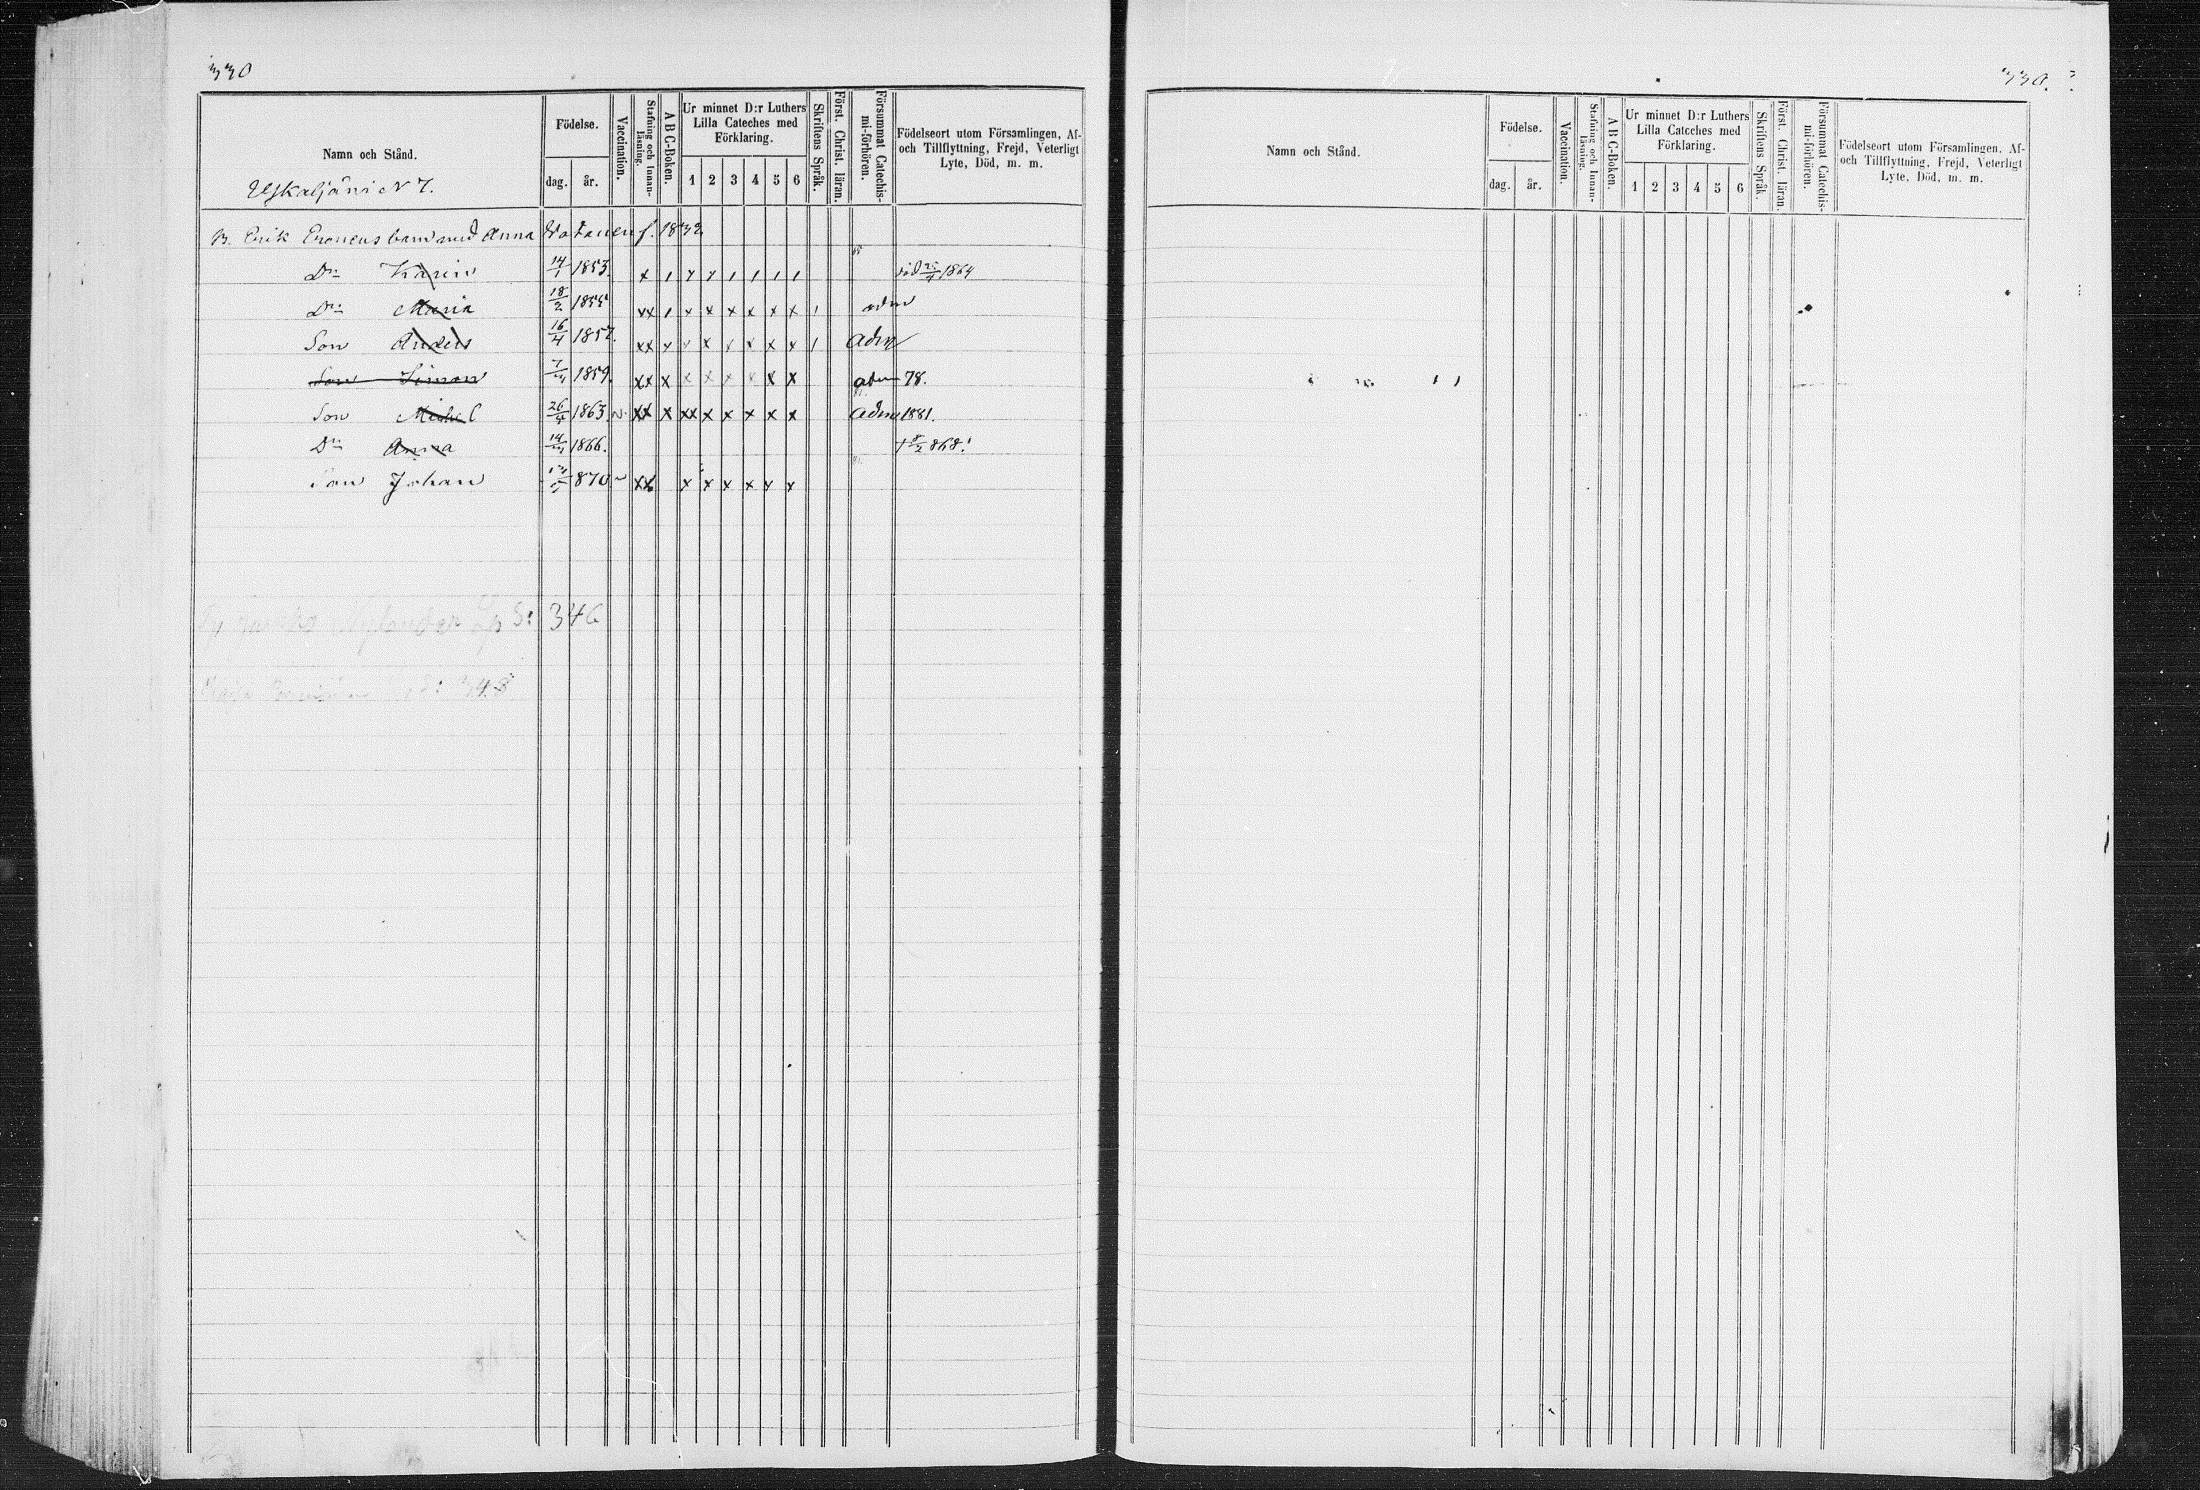 330
Namn och Stånd.
Födelse.
dag. år.
Vaccination.
Stafning och Innan-läsning.
A B C-Boken.
Ur minnet D:r Luthers Lilla Cateches med Förklaring.
1 2 3 4 5 6
Skriftens Språk.
Först. Christ. läran.
Försummat Catechis-mi-förhören.
Födelseort utom Församlingen, Af- och Tillflyttning, Frejd, Veterligt Lyte, Död, m. m.
N 7.
B. Erik Eronens barn med Anna f. 1832
Dr Karin 14/1 1853. x 1864
Dr Maria 18/2 1855 xx x x x x x x adm
Son Anders 16/4 1857. xx x x x x x x x adm
Son Simon 1859. xx x x x x x x x adm 78.
Son Michel 26/4 1863 v xx x xx x x x x x adm 1881.
Dr Anna 1866. † 8/2 868.
Son Johan 870 xx x x x x x x
S: 346
348
330.
Namn och Stånd.
Födelse.
dag. år.
Vaccination.
Stafning och Innan-läsning.
A B C-Boken.
Ur minnet D:r Luthers Lilla Cateches med Förklaring.
1 2 3 4 5 6
Skriftens Språk.
Först. Christ. läran.
Försummat Catechis-mi-förhören.
Födelseort utom Församlingen, Af- och Tillflyttning, Frejd, Veterligt Lyte, Död, m. m.